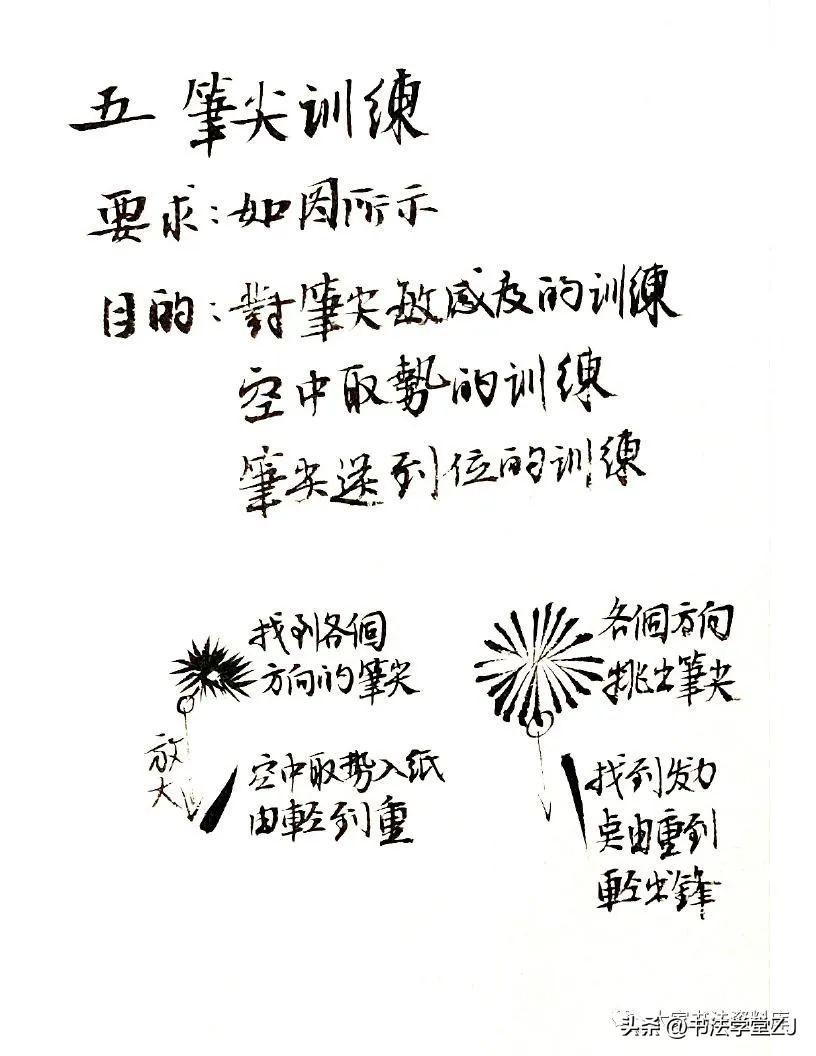 五 筆尖训練
要求：如图所示
目的：對筆尖敏感度的训練
空中取勢的训練
筆尖送到位的训練
找到各個
方向的筆尖
放大
空中取势入纸
由輕到重
各個方向
挑出筆尖
找到发力
点由重到
輕出鋒
大家书法资料库
头条@书法学堂ZJ